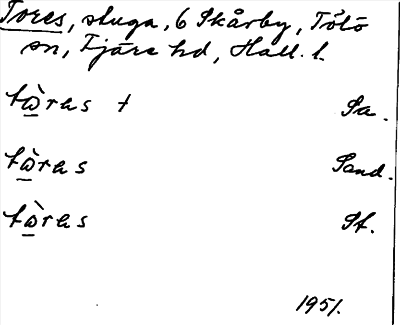 Tores, stuga, 6 Skårby, Tölö
sn, Fjäre hd, Hall. l.
tὼres t Sa.
tὼres Sand.
tὼres St.
1951.